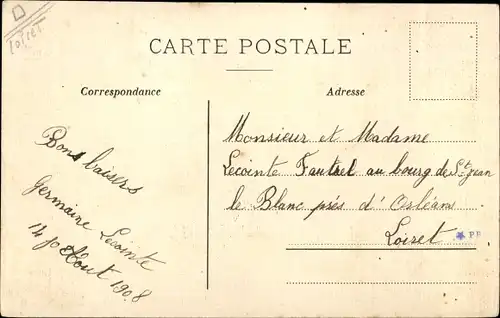 D
Loiret
CARTE POSTALE
Correspondance
Adresse
Bons baisers
Germaine Lecointe
14 Aout 1908
Monsieur et Madame
Lecointe Fautret au bourg de St jean
le Blanc près d'Orléans
Loiret
PP